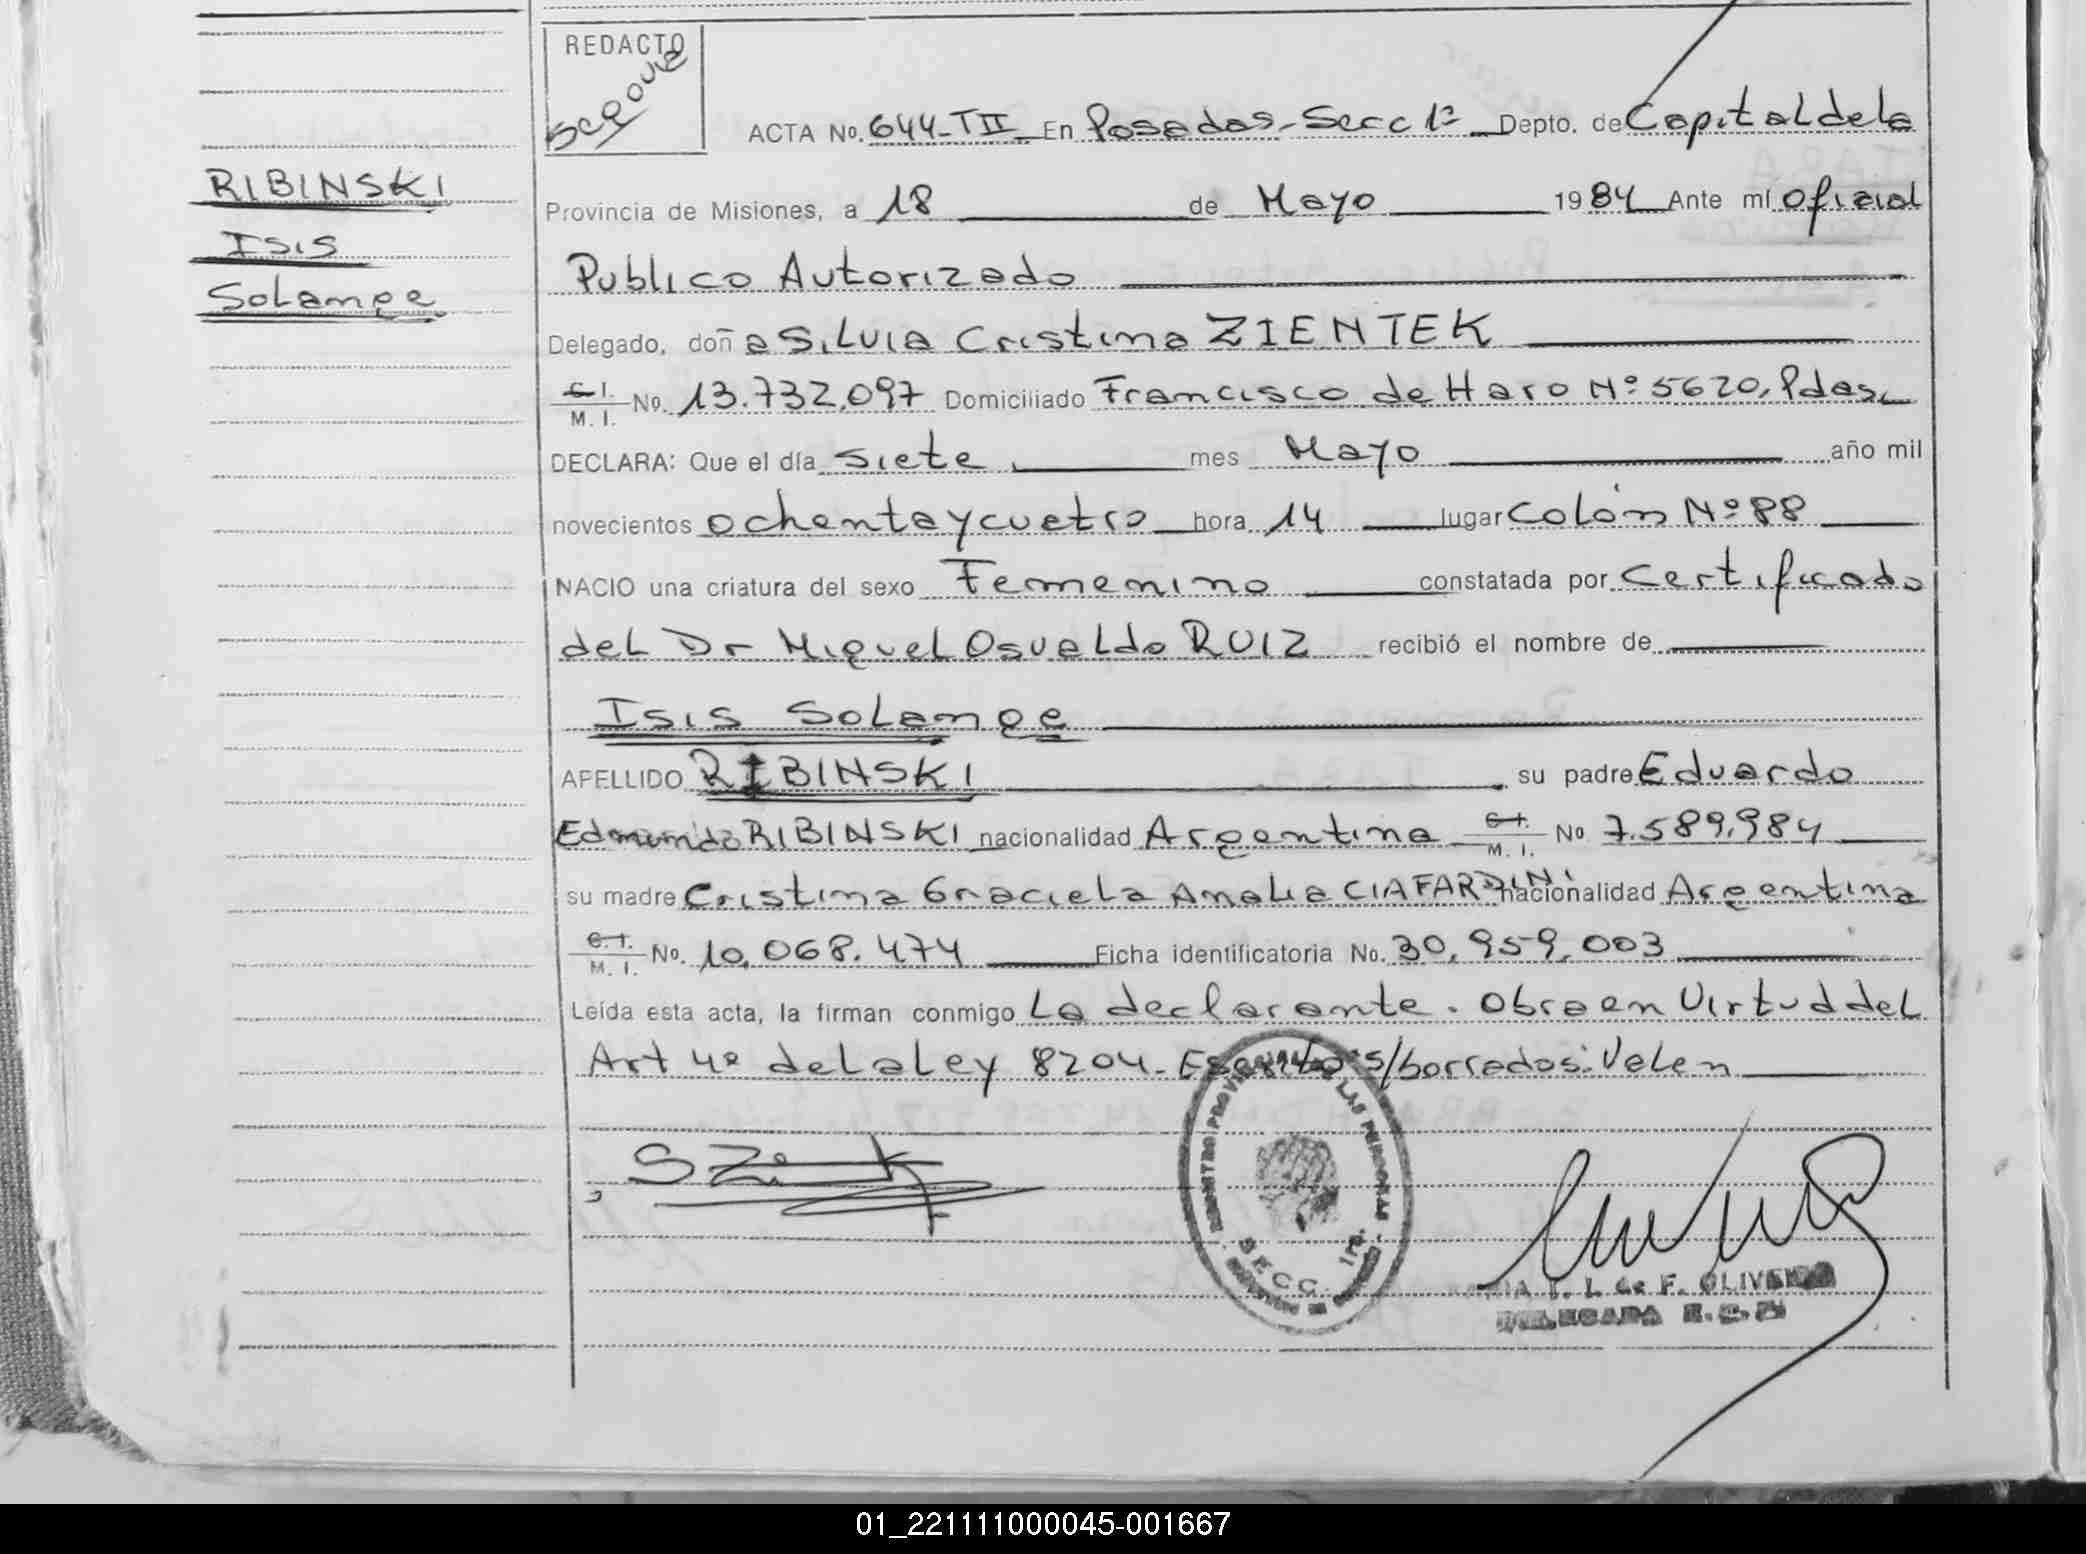 REDACTO
ACTA No. 644-TII En Posadas-Secc 1ª Depto. de Capital de la
RIBINSKI
Isis
Solange
Provincia de Misiones, a 18 de Mayo 1984 Ante mí Oficial
Publico Autorizado
Delegado, doña Silvia Cristina ZIENTEK
C.I. M. I. No. 13.732.097 Domiciliado Francisco de Haro Nº 5620, Pdas.
DECLARA: Que el día siete mes Mayo año mil
novecientos ochenta y cuatro hora 14 lugar Colón Nº 88
NACIO una criatura del sexo Femenino constatada por Certificado
del Dr Miguel Osvaldo RUIZ recibió el nombre de
Isis Solange
APELLIDO RIBINSKI su padre Eduardo
Edmundo RIBINSKI nacionalidad Argentina C.I. M. I. No 7.589.984
su madre Cristina Graciela Amalia CIAFARDINI nacionalidad Argentina
C.I. M. I. No. 10.068.474 Ficha identificatoria No. 30.959.003
Leída esta acta, la firman conmigo La declarante. Obra en Virtud del
Art 4º de la ley 8204. Escrito s/borrados: Valen
REGISTRO PROVINCIAL DE LAS PERSONAS
SECC. 1ra.
T. L. de F. OLIVEIRA
DELEGADA
01_221111000045-001667